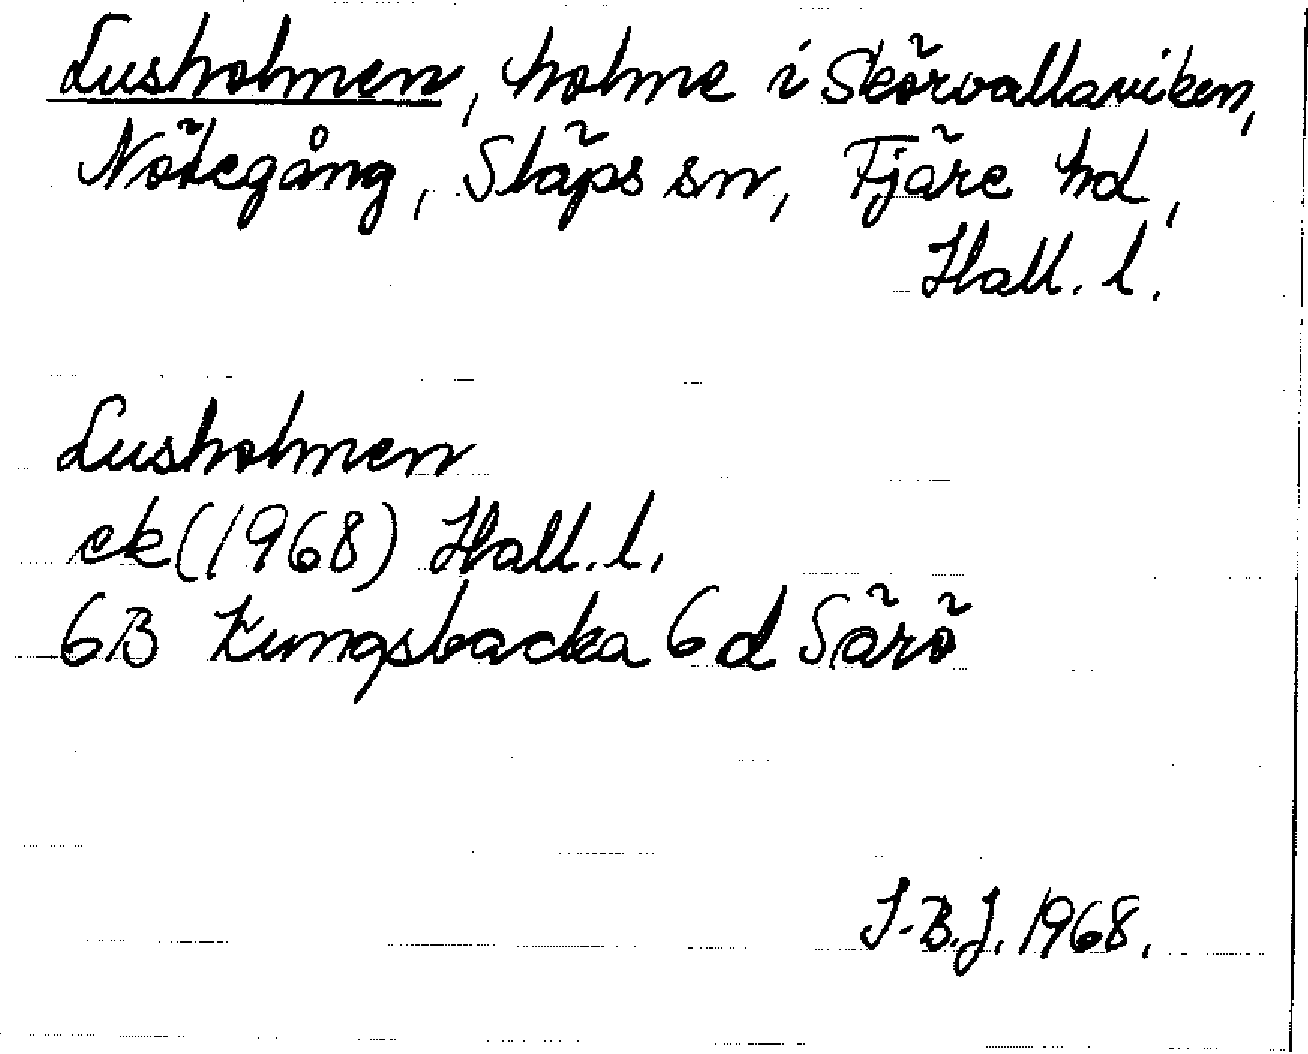 Lusholmen, holme i Skörvallaviken,
Nötegång, Släps sn, Fjäre hd,
Hall. l.
Lusholmen
ek (1968) Hall. l.
6B Kungsbacka 6 d Särö
I-B.J. 1968.